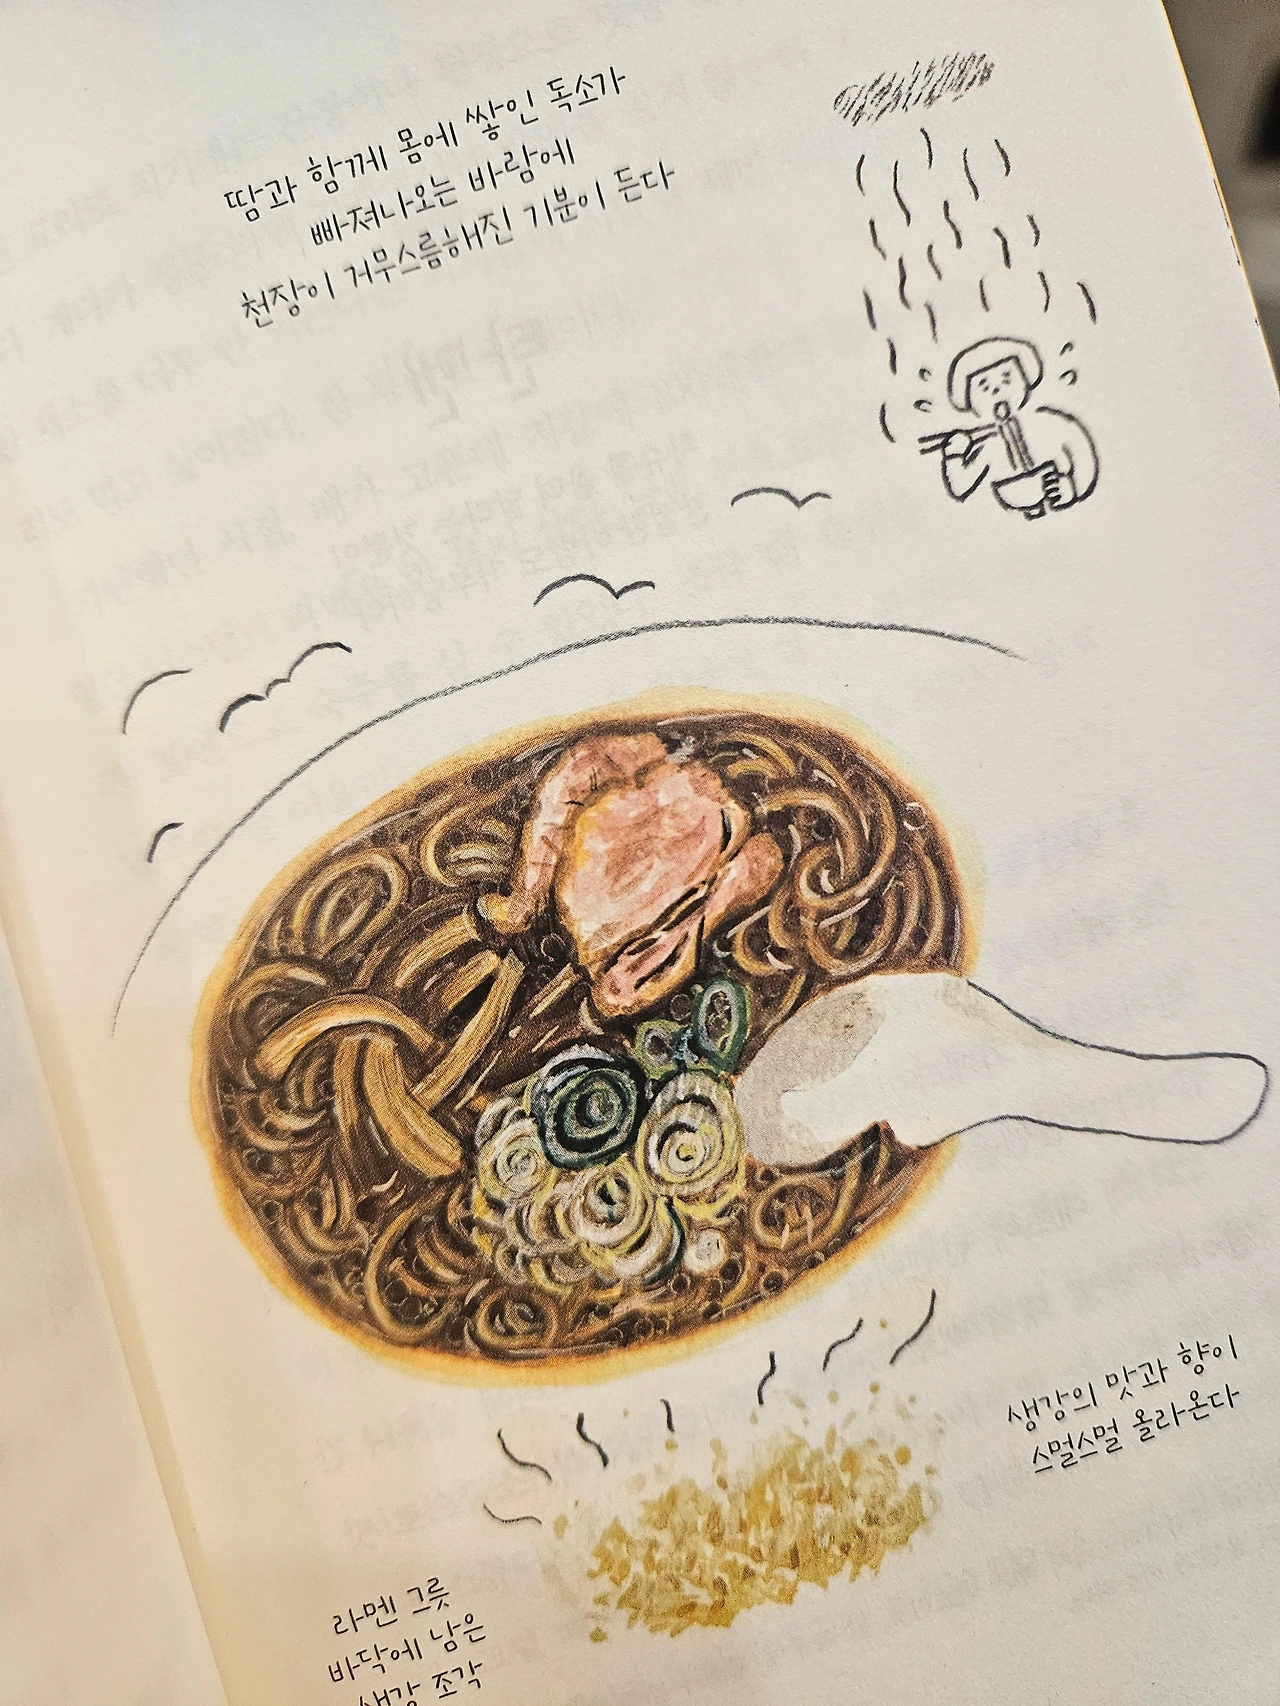 땀과 함께 몸에 쌓인 독소가
빠져나오는 바람에
천장이 거무스름해진 기분이 든다
생강의 맛과 향이
스멀스멀 올라온다
라멘 그릇
바닥에 남은
생강 조각